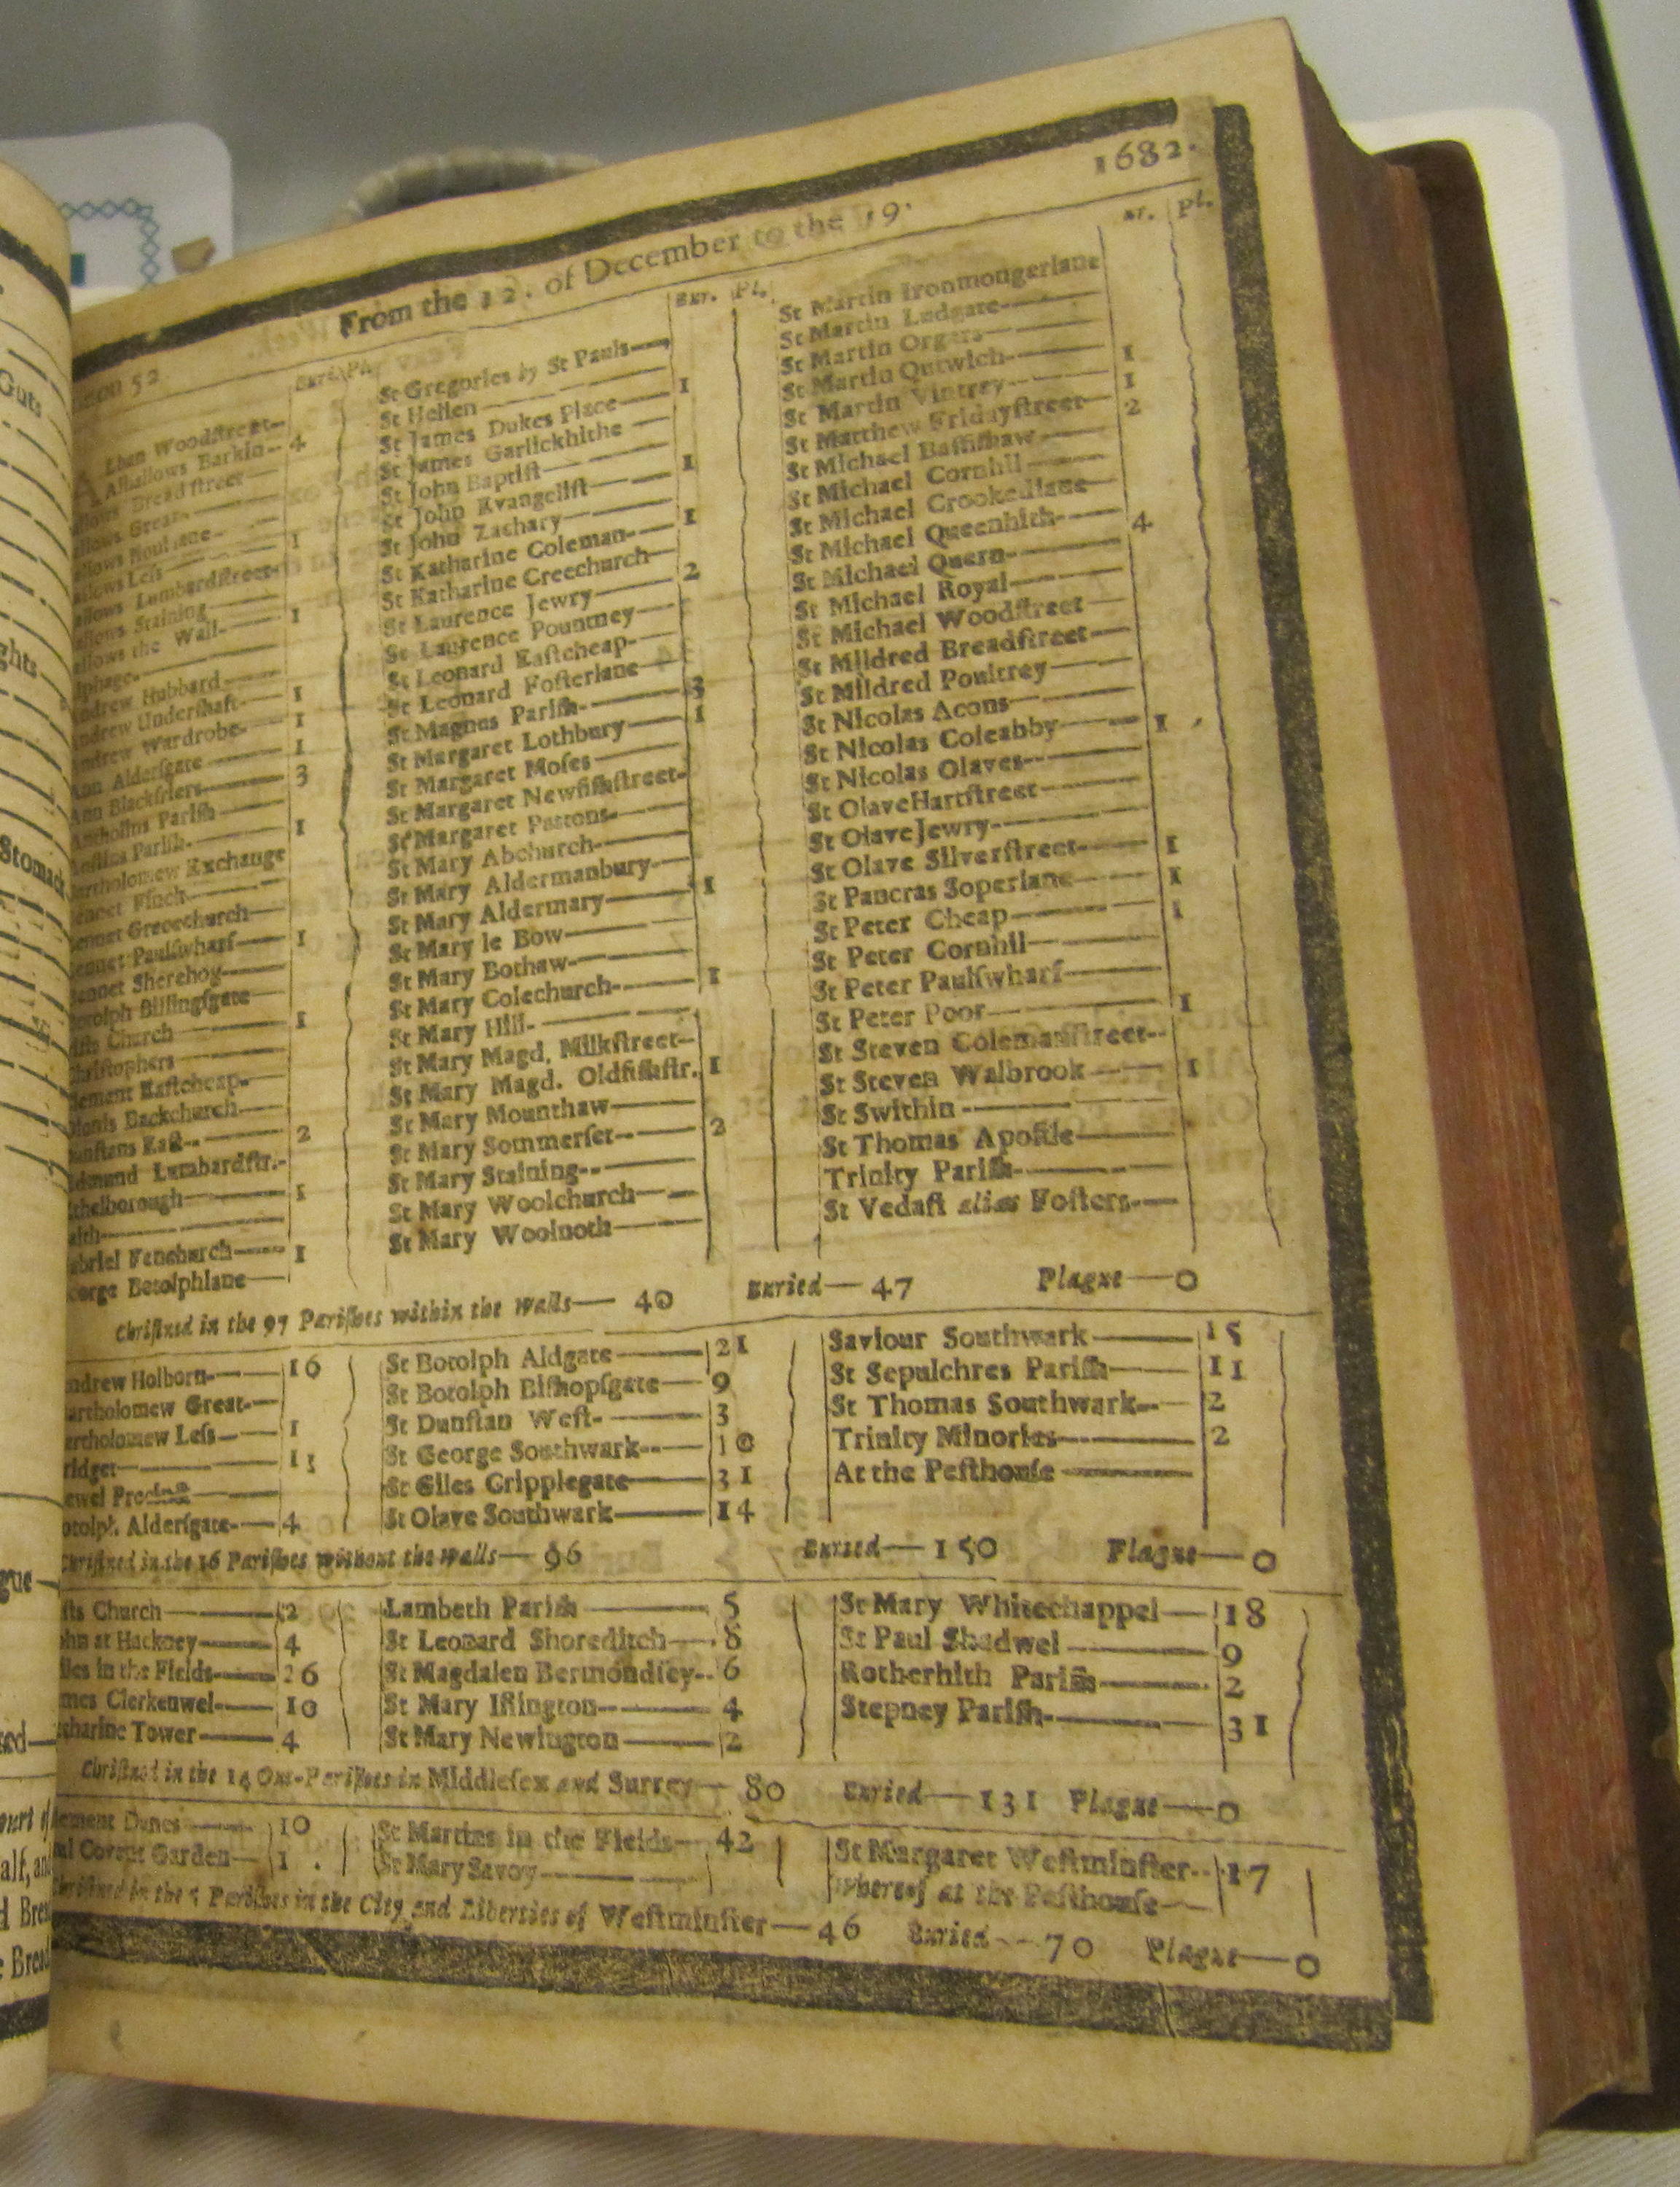 1682.
From the 12. of December to the 19.
52
Bur. Pl.
Bur. Pl.
Pl.
lban Woodſtreet
Alhallows Barkin 4
Bread ſtreet
Great
1
Leſs
Lumbardſtreet
Staining
the Wall 1
Hubbard
Underſhaft 1
Wardrobe 1
Alderſgate 1
Blackfriers 3
Pariſh
Pariſh 1
Exchange
Finch
Gracechurch
Paulſwharf 1
Sherehog
Billingſgate
Church 1
Eaſtcheap
Backchurch
Eaſt 2
Lumbardſtr.
1
Fenchurch 1
Botolphlane
St Gregories by St Pauls
St Hellen
St James Dukes Place 1
St James Garlickhithe
St John Baptiſt
St John Evangeliſt 1
St John Zachary
St Katharine Coleman 1
St Katharine Creechurch
St Laurence Jewry 2
St Laurence Pountney
St Leonard Eaſtcheap
St Leonard Foſterlane
St Magnus Pariſh 3
St Margaret Lothbury 1
St Margaret Moſes
St Margaret Newfiſhſtreet
St Margaret Pattons
St Mary Abchurch
St Mary Aldermanbury
St Mary Aldermary 1
St Mary le Bow
St Mary Bothaw
St Mary Colechurch 1
St Mary Hill
St Mary Magd. Milkſtreet
St Mary Magd. Oldfiſhſtr. 1
St Mary Mounthaw
St Mary Sommerſet 2
St Mary Staining
St Mary Woolchurch
St Mary Woolnoth
St Martin Ironmongerlane
St Martin Ludgate
St Martin Orgars
St Martin Outwich 1
St Martin Vintrey 1
St Matthew Fridayſtreet 2
St Michael Baſſiſhaw
St Michael Cornhil
St Michael Crookedlane
St Michael Queenhith 4
St Michael Quern
St Michael Royal
St Michael Woodſtreet
St Mildred Breadſtreet
St Mildred Poultrey
St Nicolas Acons
St Nicolas Coleabby 1
St Nicolas Olaves
St Olave Hartſtreet
St Olave Jewry
St Olave Silverſtreet 1
St Pancras Soperlane 1
St Peter Cheap 1
St Peter Cornhil
St Peter Paulſwharf
St Peter Poor 1
St Steven Colemanſtreet
St Steven Walbrook 1
St Swithin
St Thomas Apoſtle
Trinity Pariſh
St Vedaſt alias Foſters
Chriſtned in the 97 Pariſhes within the Walls— 40 Buried— 47 Plague—0
ndrew Holborn 16
artholomew Great
artholomew Leſs 1
ridget 13
ewel Precinct
otolph Alderſgate 4
St Botolph Aldgate 21
St Botolph Biſhopſgate 9
St Dunſtan Weſt 3
St George Southwark 10
St Giles Cripplegate 31
St Olave Southwark 14
Saviour Southwark 15
St Sepulchres Pariſh 11
St Thomas Southwark 2
Trinity Minories 2
At the Peſthouſe
Chriſtned in the 16 Pariſhes without the Walls— 96 Buried— 150 Plague—0
ſts Church 2
ohn at Hackney 4
iles in the Fields 26
mes Clerkenwel 10
atharine Tower 4
Lambeth Pariſh 5
St Leonard Shoreditch 8
St Magdalen Bermondſey 6
St Mary Iſlington 4
St Mary Newington 2
St Mary Whitechappel 18
St Paul Shadwel 9
Rotherhith Pariſh 2
Stepney Pariſh 31
Chriſtned in the 14 Out-Pariſhes in Middleſex and Surrey— 80 Buried— 131 Plague—0
lement Danes 10
ul Covent Garden 1
St Martins in the Fields 42
St Mary Savoy
St Margaret Weſtminſter 17
Whereof at the Peſthouſe
Chriſtned in the 5 Pariſhes in the City and Liberties of Weſtminſter— 46 Buried— 70 Plague—0
Guts
ghts
Stomach
gue
alf, and